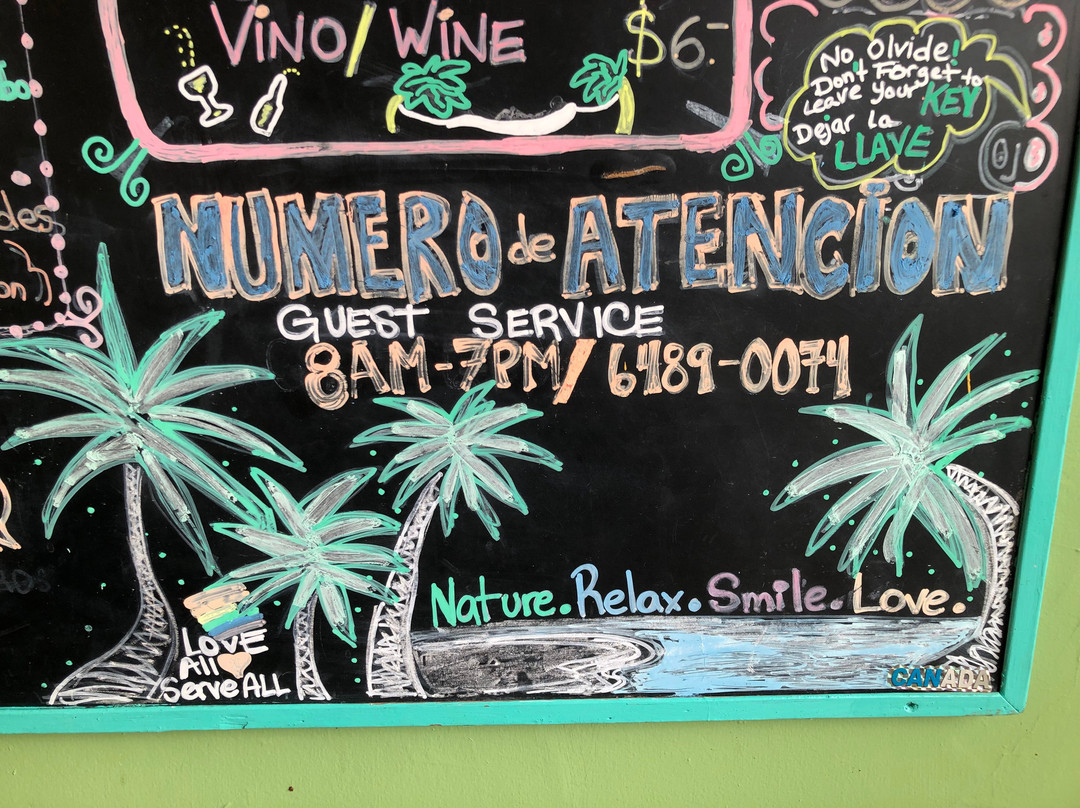 VINO/ WINE $6.-
No Olvide!
Don't Forget to
Leave your KEY
Dejar la
LLAVE
NUMERO de ATENCIÓN
GUEST SERVICE
8AM-7PM/ 6489-0074
Nature. Relax. Smile. Love.
LOVE
All
Serve ALL
CANADA